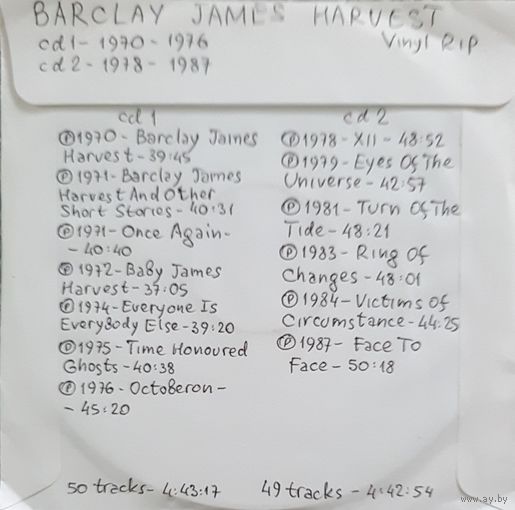 BARCLAY JAMES HARVEST
cd1 - 1970 - 1976
Vinyl RIP
cd2 - 1978 - 1987
cd 1
Ⓟ1970 - Barclay James
Harvest - 39:45
Ⓟ1971 - Barclay James
Harvest And Other
Short Stories - 40:31
Ⓟ1971 - Once Again -
- 40:40
Ⓟ1972 - Baby James
Harvest - 37:05
Ⓟ1974 - Everyone Is
EveryBody Else - 39:20
Ⓟ1975 - Time Honoured
Ghosts - 40:38
Ⓟ1976 - Octoberon -
- 45:20
50 tracks - 4:43:17
cd 2
Ⓟ1978 - XII - 48:52
Ⓟ1979 - Eyes Of The
Universe - 42:57
Ⓟ1981 - Turn Of The
Tide - 48:21
Ⓟ1983 - Ring Of
Changes - 48:01
Ⓟ1984 - Victims Of
Circumstance - 44:25
Ⓟ1987 - Face To
Face - 50:18
49 tracks - 4:42:54
www.ay.by